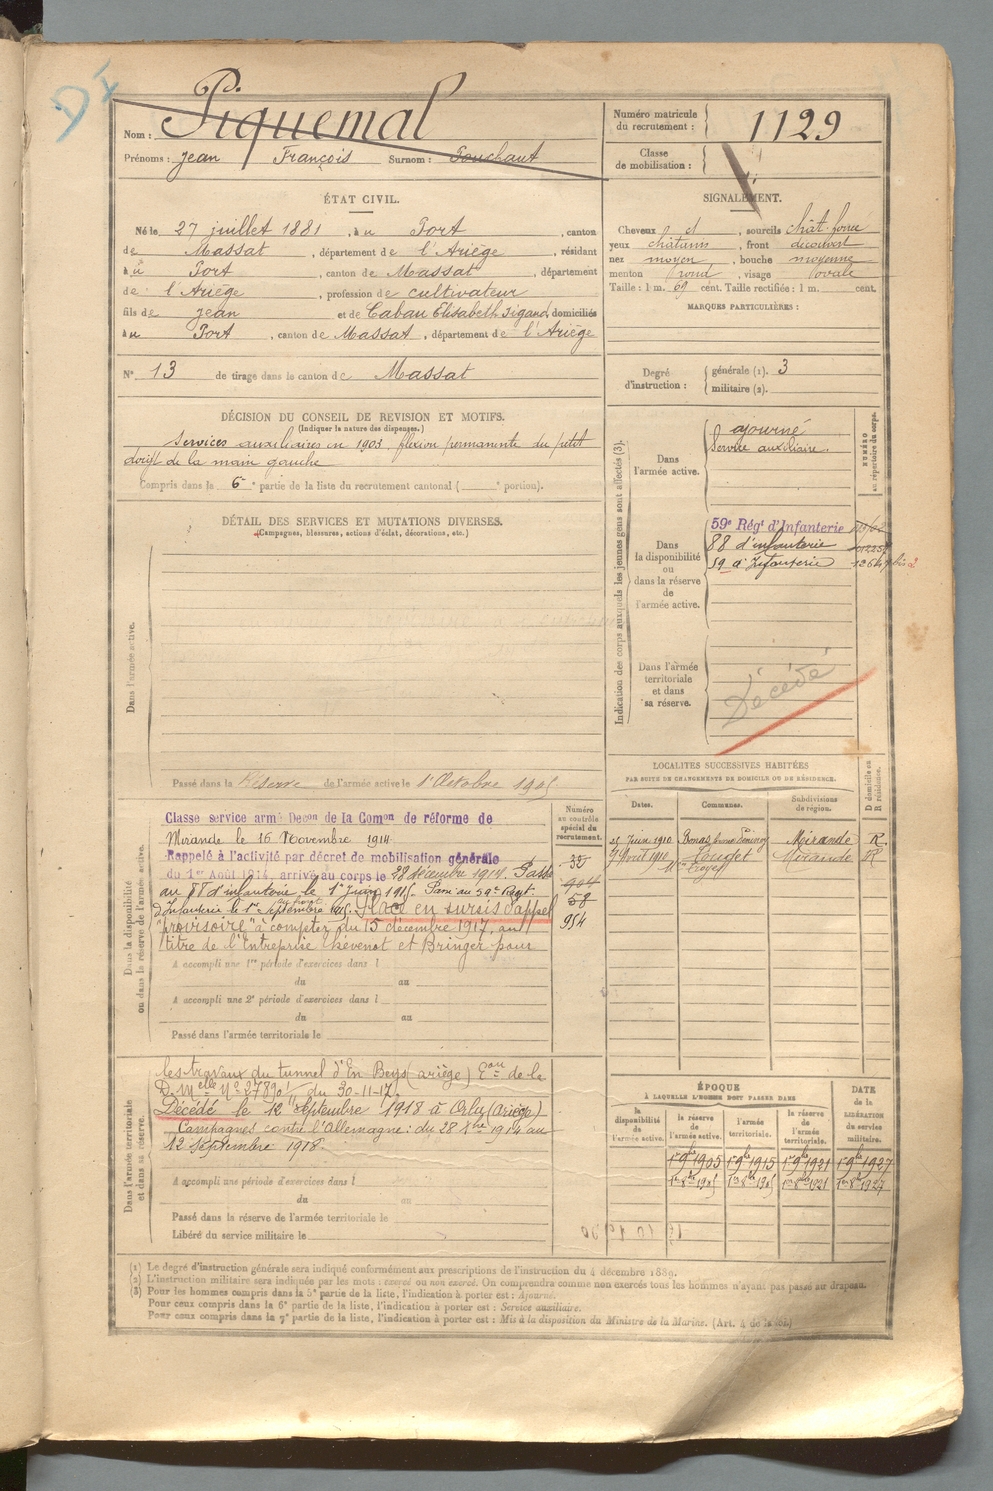 DI
Nom : Piquemal
Prénoms : Jean François Surnom :
Numéro matricule du recrutement : 1129
Classe de mobilisation :
ÉTAT CIVIL.
Né le 27 juillet 1881, à Port, canton
de Massat, département de l'Ariège, résidant
à Port, canton de Massat, département
de l'Ariège, profession de cultivateur
fils de Jean et de Cabau Elisabeth Sigand, domiciliés
à Port, canton de Massat, département de l'Ariège
N° 13 de tirage dans le canton de Massat
SIGNALEMENT.
Cheveux ct, sourcils chât. foncé
yeux châtains, front découvert
nez moyen, bouche moyenne
menton rond, visage ovale
Taille : 1 m. 69 cent. Taille rectifiée : 1 m. cent.
MARQUES PARTICULIÈRES :
Degré d'instruction : générale (1). 3
militaire (2).
DÉCISION DU CONSEIL DE REVISION ET MOTIFS.
(Indiquer la nature des dispenses.)
Services auxiliaires en 1903, flexion permanente du petit
doigt de la main gauche
Compris dans la 6e partie de la liste du recrutement cantonal ( e portion).
DÉTAIL DES SERVICES ET MUTATIONS DIVERSES.
(Campagnes, blessures, actions d'éclat, décorations, etc.)
Dans l'armée active.
Passé dans la Réserve de l'armée active le 1er Octobre 1905
Indication des corps auxquels les jeunes gens sont affectés (3).
NUMÉRO au répertoire du corps.
Dans l'armée active.
ajourné
Service auxiliaire.
Dans la disponibilité ou dans la réserve de l'armée active.
59e Régt d'Infanterie
88 d'infanterie
59 d'Infanterie
Dans l'armée territoriale et dans sa réserve.
Décédé
Dans la disponibilité ou dans la réserve de l'armée active.
Numéro au contrôle spécial du recrutement.
Classé service armé Décon de la Comon de réforme de
Mirande le 16 Novembre 1914
Rappelé à l'activité par décret de mobilisation générale
du 1er Août 1914, arrivé au corps le 28 décembre 1914. Passé
au 88 d'infanterie le 1er Juin 1915. Passé au 59e Régt.
d'Infanterie le 1er Septembre 1915. Placé en sursis d'appel
"provisoire" à compter du 15 décembre 1917, au
titre de l'Entreprise Thévenot et Bringer pour
35
904
58
954
A accompli une 1re période d'exercices dans l
du au
A accompli une 2e période d'exercices dans l
du au
Passé dans l'armée territoriale le
LOCALITÉS SUCCESSIVES HABITÉES
PAR SUITE DE CHANGEMENTS DE DOMICILE OU DE RÉSIDENCE.
Dates. Communes. Subdivisions de région. D domicile ou R résidence.
Juin 1910 Mirande R.
Avril 1910 Mirande R
Dans l'armée territoriale et dans sa réserve.
les travaux du tunnel d'En Beys (ariège) Eon de la
D. Melle N° 27890 du 30-11-17.
Décédé le 12 septembre 1918 à Orlu (Ariège)
Campagnes contre l'Allemagne : du 28 Xbre 1914 au
12 Septembre 1918.
A accompli une période d'exercices dans l
du au
Passé dans la réserve de l'armée territoriale le
Libéré du service militaire le
ÉPOQUE
À LAQUELLE L'HOMME DOIT PASSER DANS
la disponibilité de l'armée active. la réserve de l'armée active. l'armée territoriale. la réserve de l'armée territoriale.
DATE de la LIBÉRATION du service militaire.
1er 9bre 1905 1er 9bre 1915 1er 9bre 1921 1er 9bre 1927
1er 8bre 1905 1er 8bre 1915 1er 8bre 1921 1er 8bre 1927
(1) Le degré d'instruction générale sera indiqué conformément aux prescriptions de l'instruction du 4 décembre 1889.
(2) L'instruction militaire sera indiquée par les mots : exercé ou non exercé. On comprendra comme non exercés tous les hommes n'ayant pas passé au drapeau.
(3) Pour les hommes compris dans la 5e partie de la liste, l'indication à porter est : Ajourné.
Pour ceux compris dans la 6e partie de la liste, l'indication à porter est : Service auxiliaire.
Pour ceux compris dans la 7e partie de la liste, l'indication à porter est : Mis à la disposition du Ministre de la Marine. (Art. 4 de la loi.)